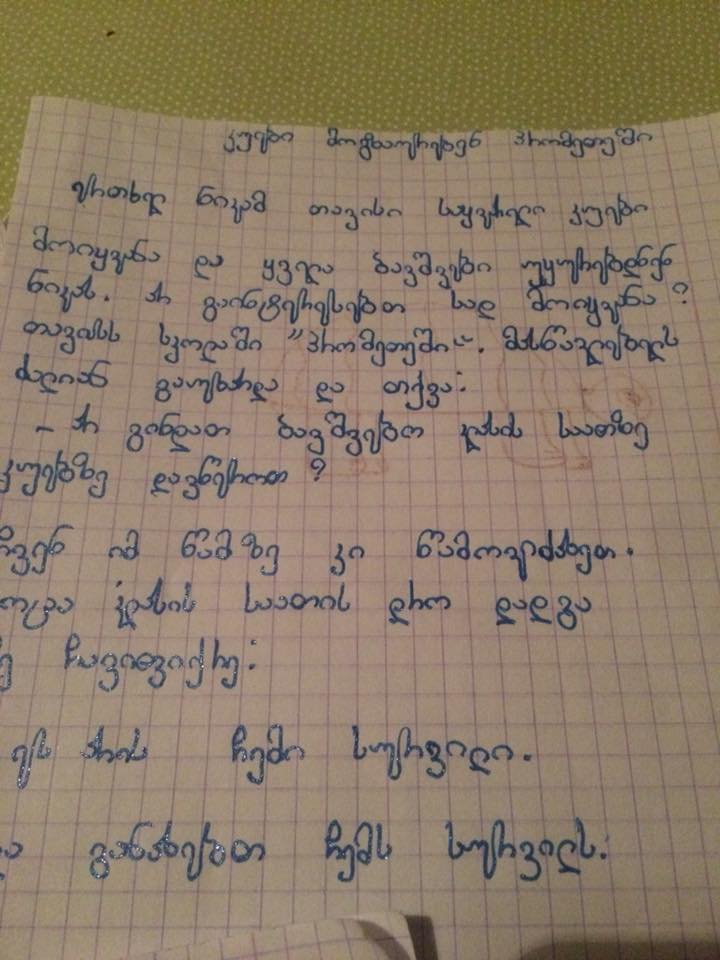 კუები მოგზაურებენ პრომეთეში
ერთხელ ნიკამ თავისი საყვარელი კუები
მოიყვანა და ყველა ბავშვები უყურებდნენ
ნიკას. არ გაინტერესებთ სად მოიყვანა?
თავისს სკოლაში "პრომეთეში". მასწავლებელს
ძალიან გაუხარდა და თქვა:
- არ გინდათ ბავშვებო კლასის საათზე
კუებზე დავწეროთ?
ჩვენ იმ წამზე კი წამოვიძახეთ.
როცა კლასის საათის დრო დადგა
მე ჩავიფიქრე:
ეს არის ჩემი სურვილი.
და განახებთ ჩემს სურვილს: